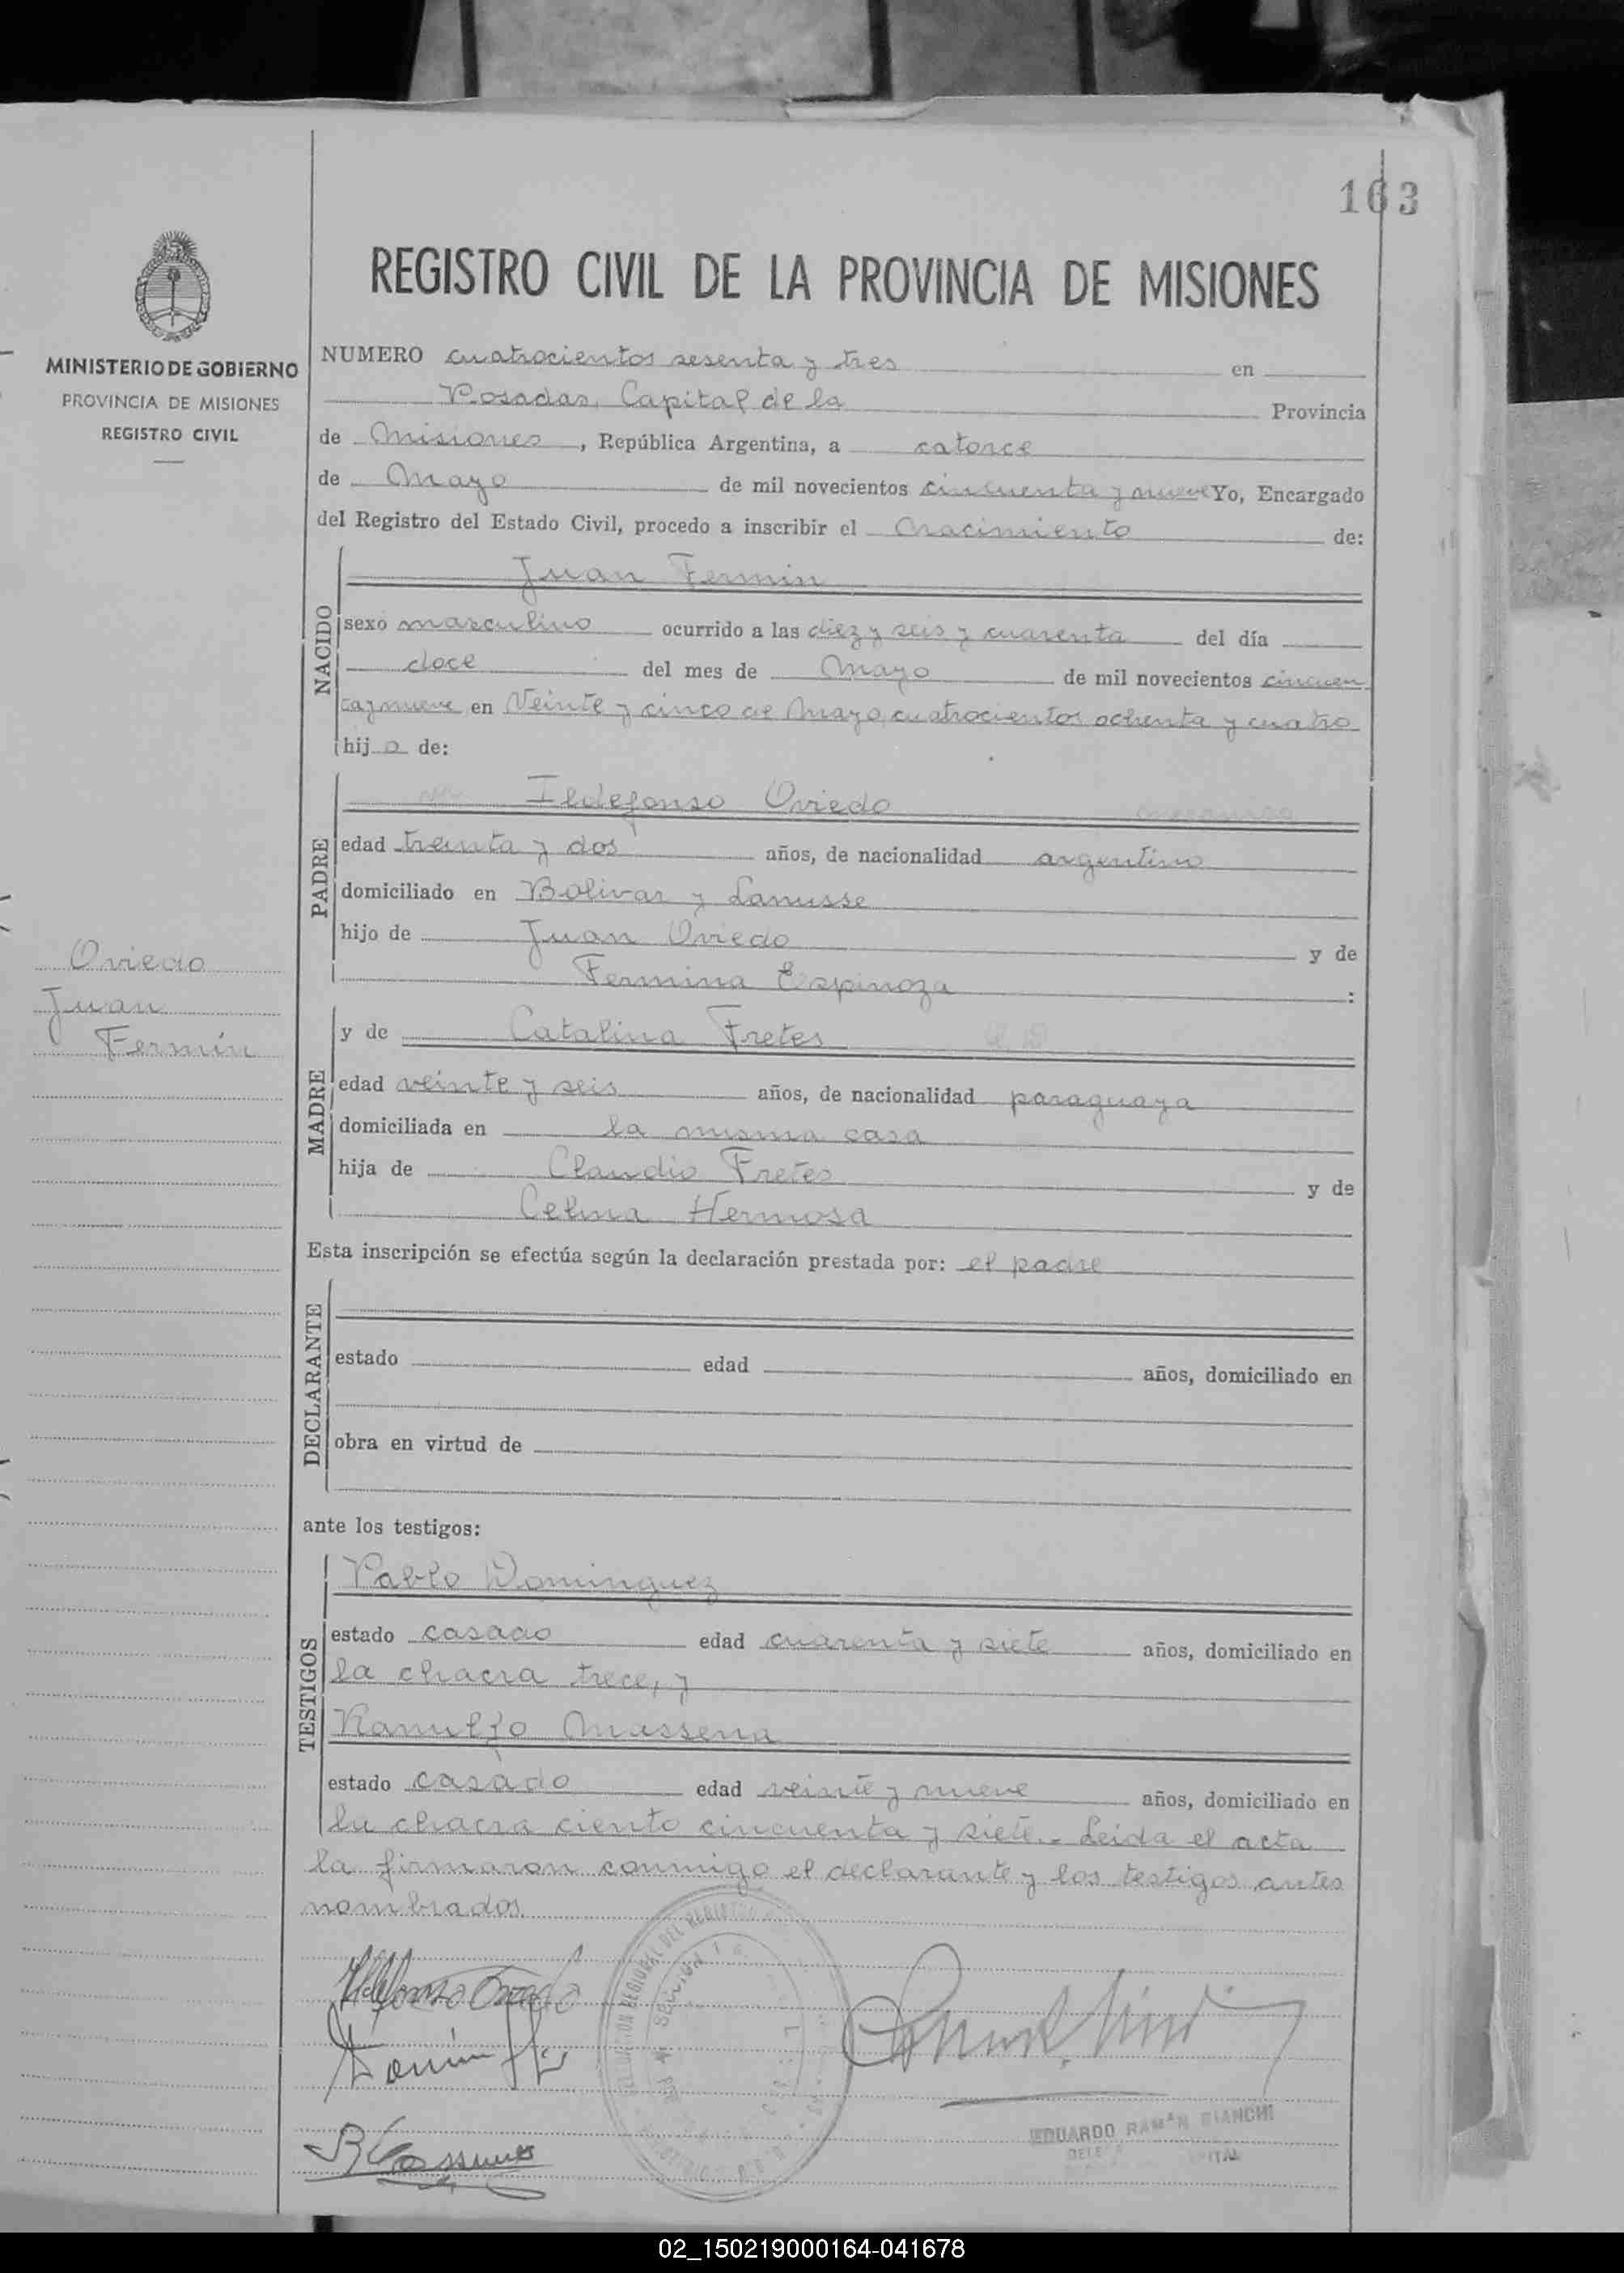 163
REGISTRO CIVIL DE LA PROVINCIA DE MISIONES
MINISTERIO DE GOBIERNO
PROVINCIA DE MISIONES
REGISTRO CIVIL
NUMERO cuatrocientos sesenta y tres en
Posadas, Capital de la Provincia
de Misiones, República Argentina, a catorce
de Mayo de mil novecientos cincuenta y nueve Yo, Encargado
del Registro del Estado Civil, procedo a inscribir el Nacimiento de:
NACIDO
Juan Fermin
sexo masculino ocurrido a las diez y seis y cuarenta del día
doce del mes de Mayo de mil novecientos cincuen
ta y nueve en Veinte y cinco de Mayo cuatrocientos ochenta y cuatro
hijo de:
PADRE
Ildefonso Oviedo
edad treinta y dos años, de nacionalidad argentino
domiciliado en Bolivar y Lanusse
hijo de Juan Oviedo y de
Fermina Espinoza :
Oviedo
Juan
Fermín
MADRE
y de Catalina Fretes
edad veinte y seis años, de nacionalidad paraguaya
domiciliada en la misma casa
hija de Claudio Fretes y de
Celina Hermosa
Esta inscripción se efectúa según la declaración prestada por: el padre
DECLARANTE
estado edad años, domiciliado en
obra en virtud de
ante los testigos:
TESTIGOS
Pablo Dominguez
estado casado edad cuarenta y siete años, domiciliado en
la chacra trece, y
Ranulfo Massena
estado casado edad veinte y nueve años, domiciliado en
la chacra ciento cincuenta y siete.- Leida el acta
la firmaron conmigo el declarante y los testigos antes
nombrados.
Ildefonso Oviedo
EDUARDO RAMON BIANCHI
02_150219000164-041678